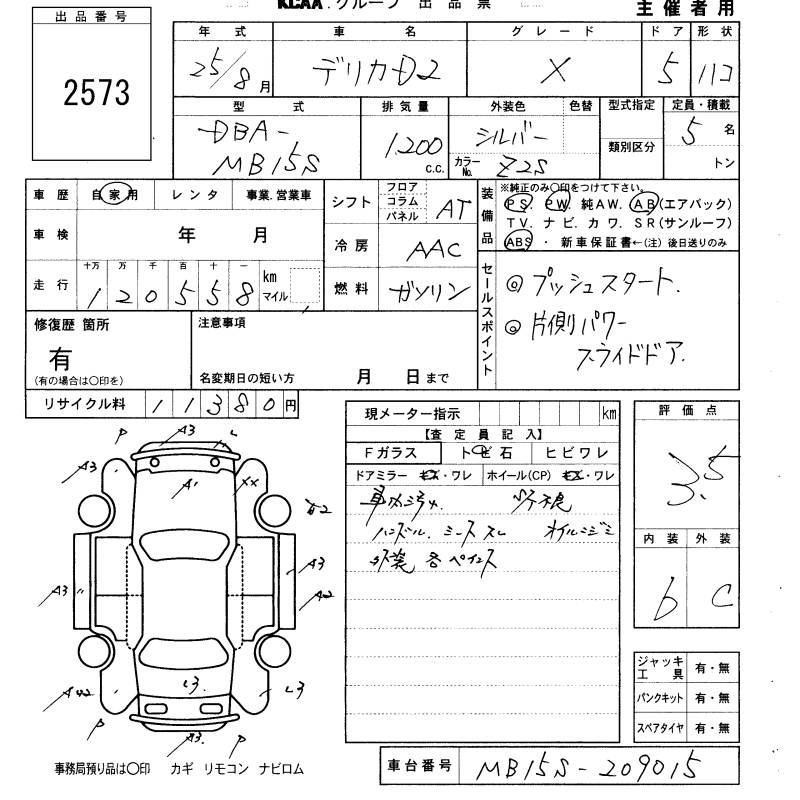 KCAA グループ 出品票
主催者用
出品番号
2573
年式 車名 グレード ドア 形状
25/8月 デリカD2 X 5 ハコ
型式 排気量 外装色 色替 型式指定 定員・積載
DBA- 1,200 シルバー 類別区分 5名
MB15S c.c. カラーNo. Z2S トン
車歴 自家用 レンタ 事業.営業車
車検 年 月
走行 十万 万 千 百 十 一
120558 km マイル
シフト フロア コラム パネル AT
冷房 AAC
燃料 ガソリン
装備品 ※純正のみ○印をつけて下さい。
PS. PW. 純AW. AB(エアバック)
TV. ナビ. カワ. SR(サンルーフ)
ABS ・ 新車保証書←(注) 後日送りのみ
セールスポイント
◎ プッシュスタート.
◎ 片側パワー
スライドドア.
修復歴 箇所
有
(有の場合は○印を)
注意事項
名変期日の短い方 月 日まで
リサイクル料 11380円
現メーター指示 km
【査定員記入】
Fガラス トビ石 ヒビワレ
ドアミラー キズ・ワレ ホイール(CP) キズ・ワレ
ハンドル. シートスレ オイルニジミ
外装 各ペイント
評価点
3.5
内装 外装
6 C
P A3 L
A3 A1 XX
A3 A3
A2
L3. L3
P A3. P
事務局預り品は○印 カギ リモコン ナビロム
ジャッキ工具 有・無
パンクキット 有・無
スペアタイヤ 有・無
車台番号 MB15S-209015